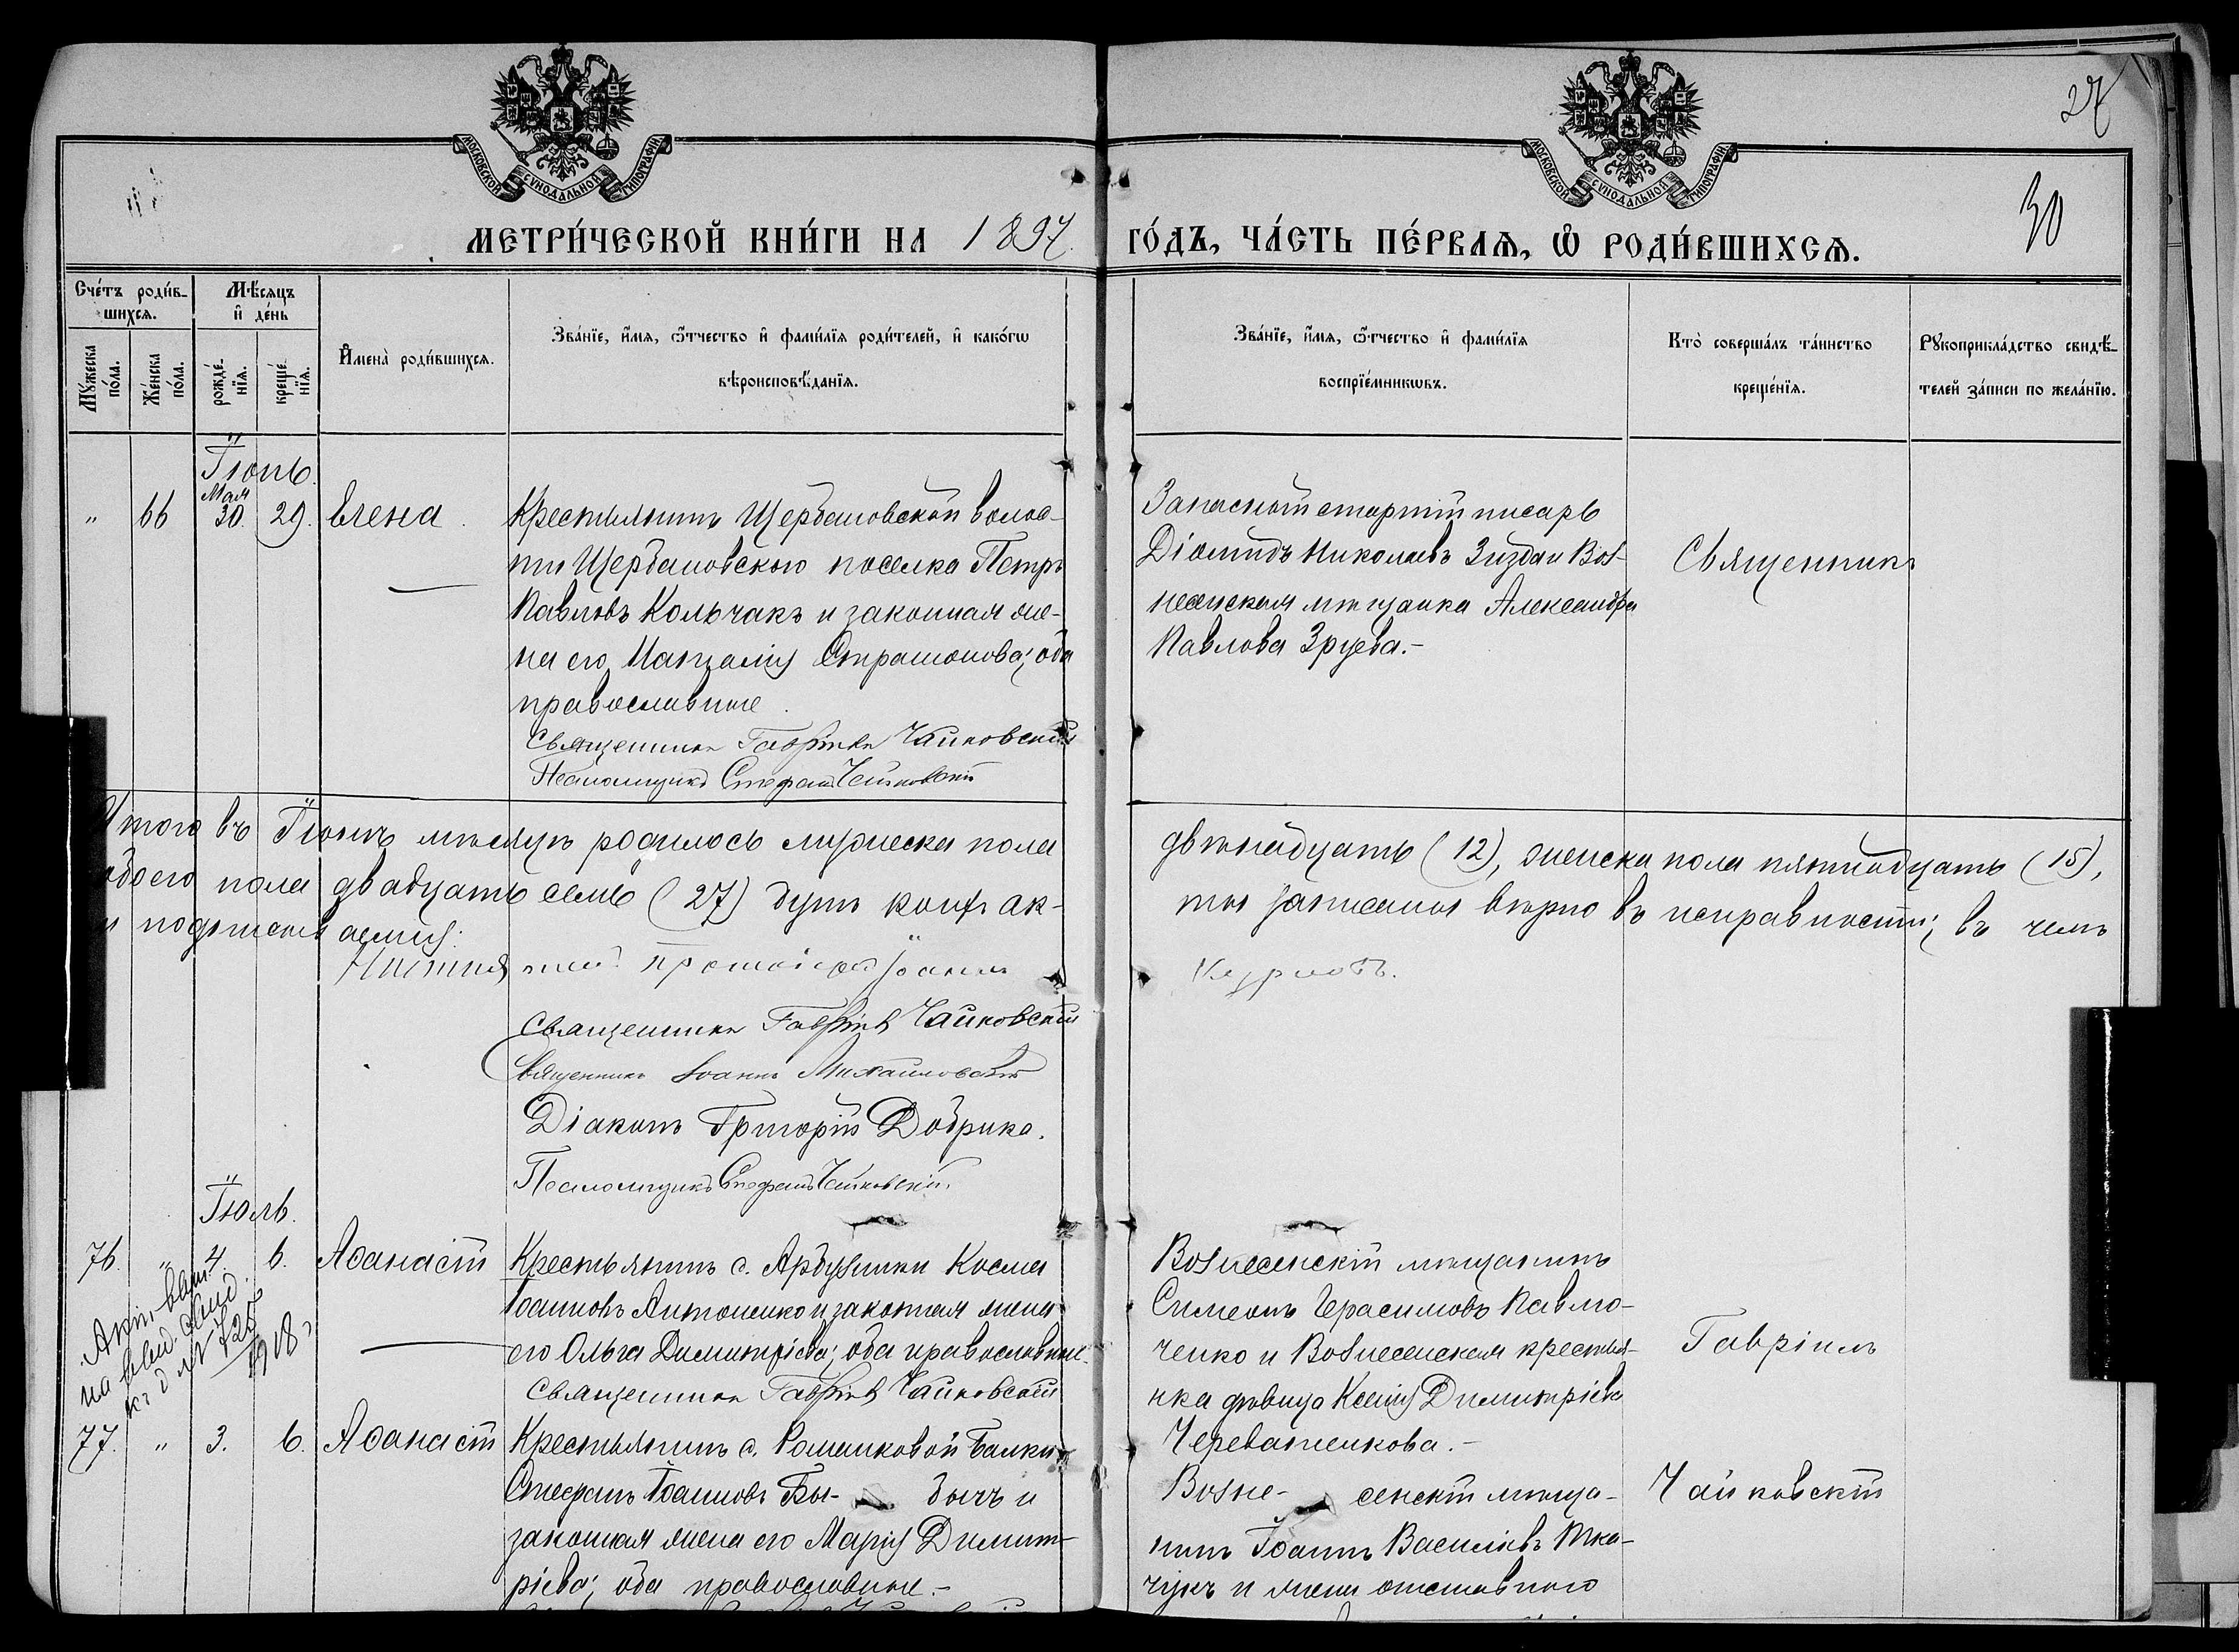 27
30
МОСКОВСКОЙ СѴНОДАЛЬНОЙ ТИПОГРАФІИ
МОСКОВСКОЙ СѴНОДАЛЬНОЙ ТИПОГРАФІИ
МЕТРИ́ЧЕСКОЙ КНИ́ГИ НА 1897 ГО́ДЪ, ЧА́СТЬ ПЕ́РВАѦ, Ѡ РОДИ́ВШИХСѦ.
Сче́тъ роди́в-
шихсѧ.
Мѣ́сѧцъ
и҆ де́нь
Мꙋ́жеска
по́ла.
Же́нска
по́ла.
рожде́-
нїѧ.
креще́-
нїѧ.
И҆мена̀ роди́вшихсѧ.
Зва́нїе, и҆́мѧ, ѻ҆́тчество и҆ фами́лїѧ роди́телей, и҆ како́гѡ
вѣроисповѣ́данїѧ.
Зва́нїе, и҆́мѧ, ѻ҆́тчество и҆ фами́лїѧ
воспрїе́мникѡвъ.
Кто̀ соверша́лъ та́инство
креще́нїѧ.
Рꙋкоприкла́дство свидѣ́-
телей за́писи по жела́нїю.
Іюнь.
Мая
" 66 30. 29. Елена.
Крестьянинъ Щербановской волос-
ти Щербановскаго поселка Петръ
Павловъ Кольчакъ и законная же-
на его Наталія Стратонова; оба
православные.
Священникъ Гавріилъ Чайковскій
Псаломщикъ Стефанъ Чайковскій
Запасной старшій писарь
Діомидъ Николаевъ и Воз-
несенская мѣщанка Александра
Павлова
Священникъ
Итого въ Іюнѣ мѣсяцѣ родилось мужеска пола двѣнадцать (12), женска пола пятнадцать (15),
обоего пола двадцать семь (27) душъ кои въ ак-ты записаны вѣрно въ исправности; въ чемъ
и подписываемся:
протоіерей Іоаннъ
Священникъ Гавріилъ Чайковскій
Священникъ Іоаннъ Михайловскій
Діаконъ Григорій Добрика.
Псаломщикъ Стефанъ Чайковскій.
Іюль.
76. " 4. 6. Аѳанасій
Крестьянинъ с. Арбузинки Косма
Іоанновъ Антоненко и законная жена
его Ольга Димитріева; оба православные.
Священникъ Гавріилъ Чайковскій
Вознесенскій мѣщанинъ
Симеонъ Герасимовъ Павлю-
ченко и Вознесенская крестья-
нка дѣвица Ксенія Димитріева
Череватенкова.-
Гавріилъ
1918
77. " 3. 6. Аѳанасій
Крестьянинъ с. Ромашковой Балки
Стефанъ Іоанновъ Бы- бычъ и
законная жена его Марія Димит-
ріева; оба православные.-
Возне- сенскій мѣща-
нинъ Іоаннъ Василіевъ Тка-
чукъ и жена отставного
Чайковскій